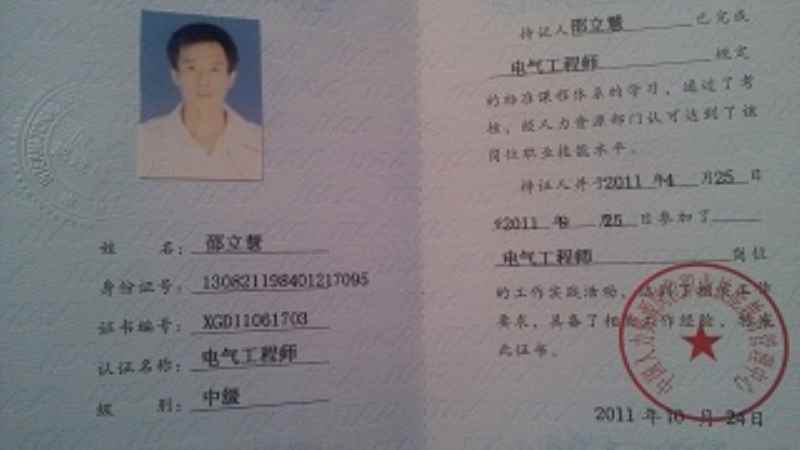 姓 名：邵立慧
身份证号：130821198401217095
证书编号：XGD11061703
认证名称：电气工程师
级 别：中级
持证人邵立慧 已完成
电气工程师 规定
的标准课程体系的学习，通过了考
核，经人力资源部门认可达到了该
岗位职业技能水平。
持证人并于2011 年4 月25日
至2011 年8 月25 日参加了
电气工程师 岗位
的工作实践活动，达到了相关工作
要求，具备了相关工作经验，特发
此证书。
2011 年 10 月 24日